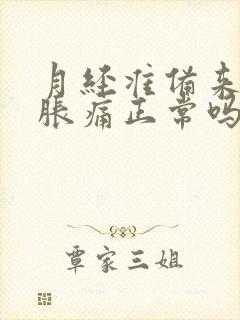 月经准备来
胀痛正常吗
覃家三姐